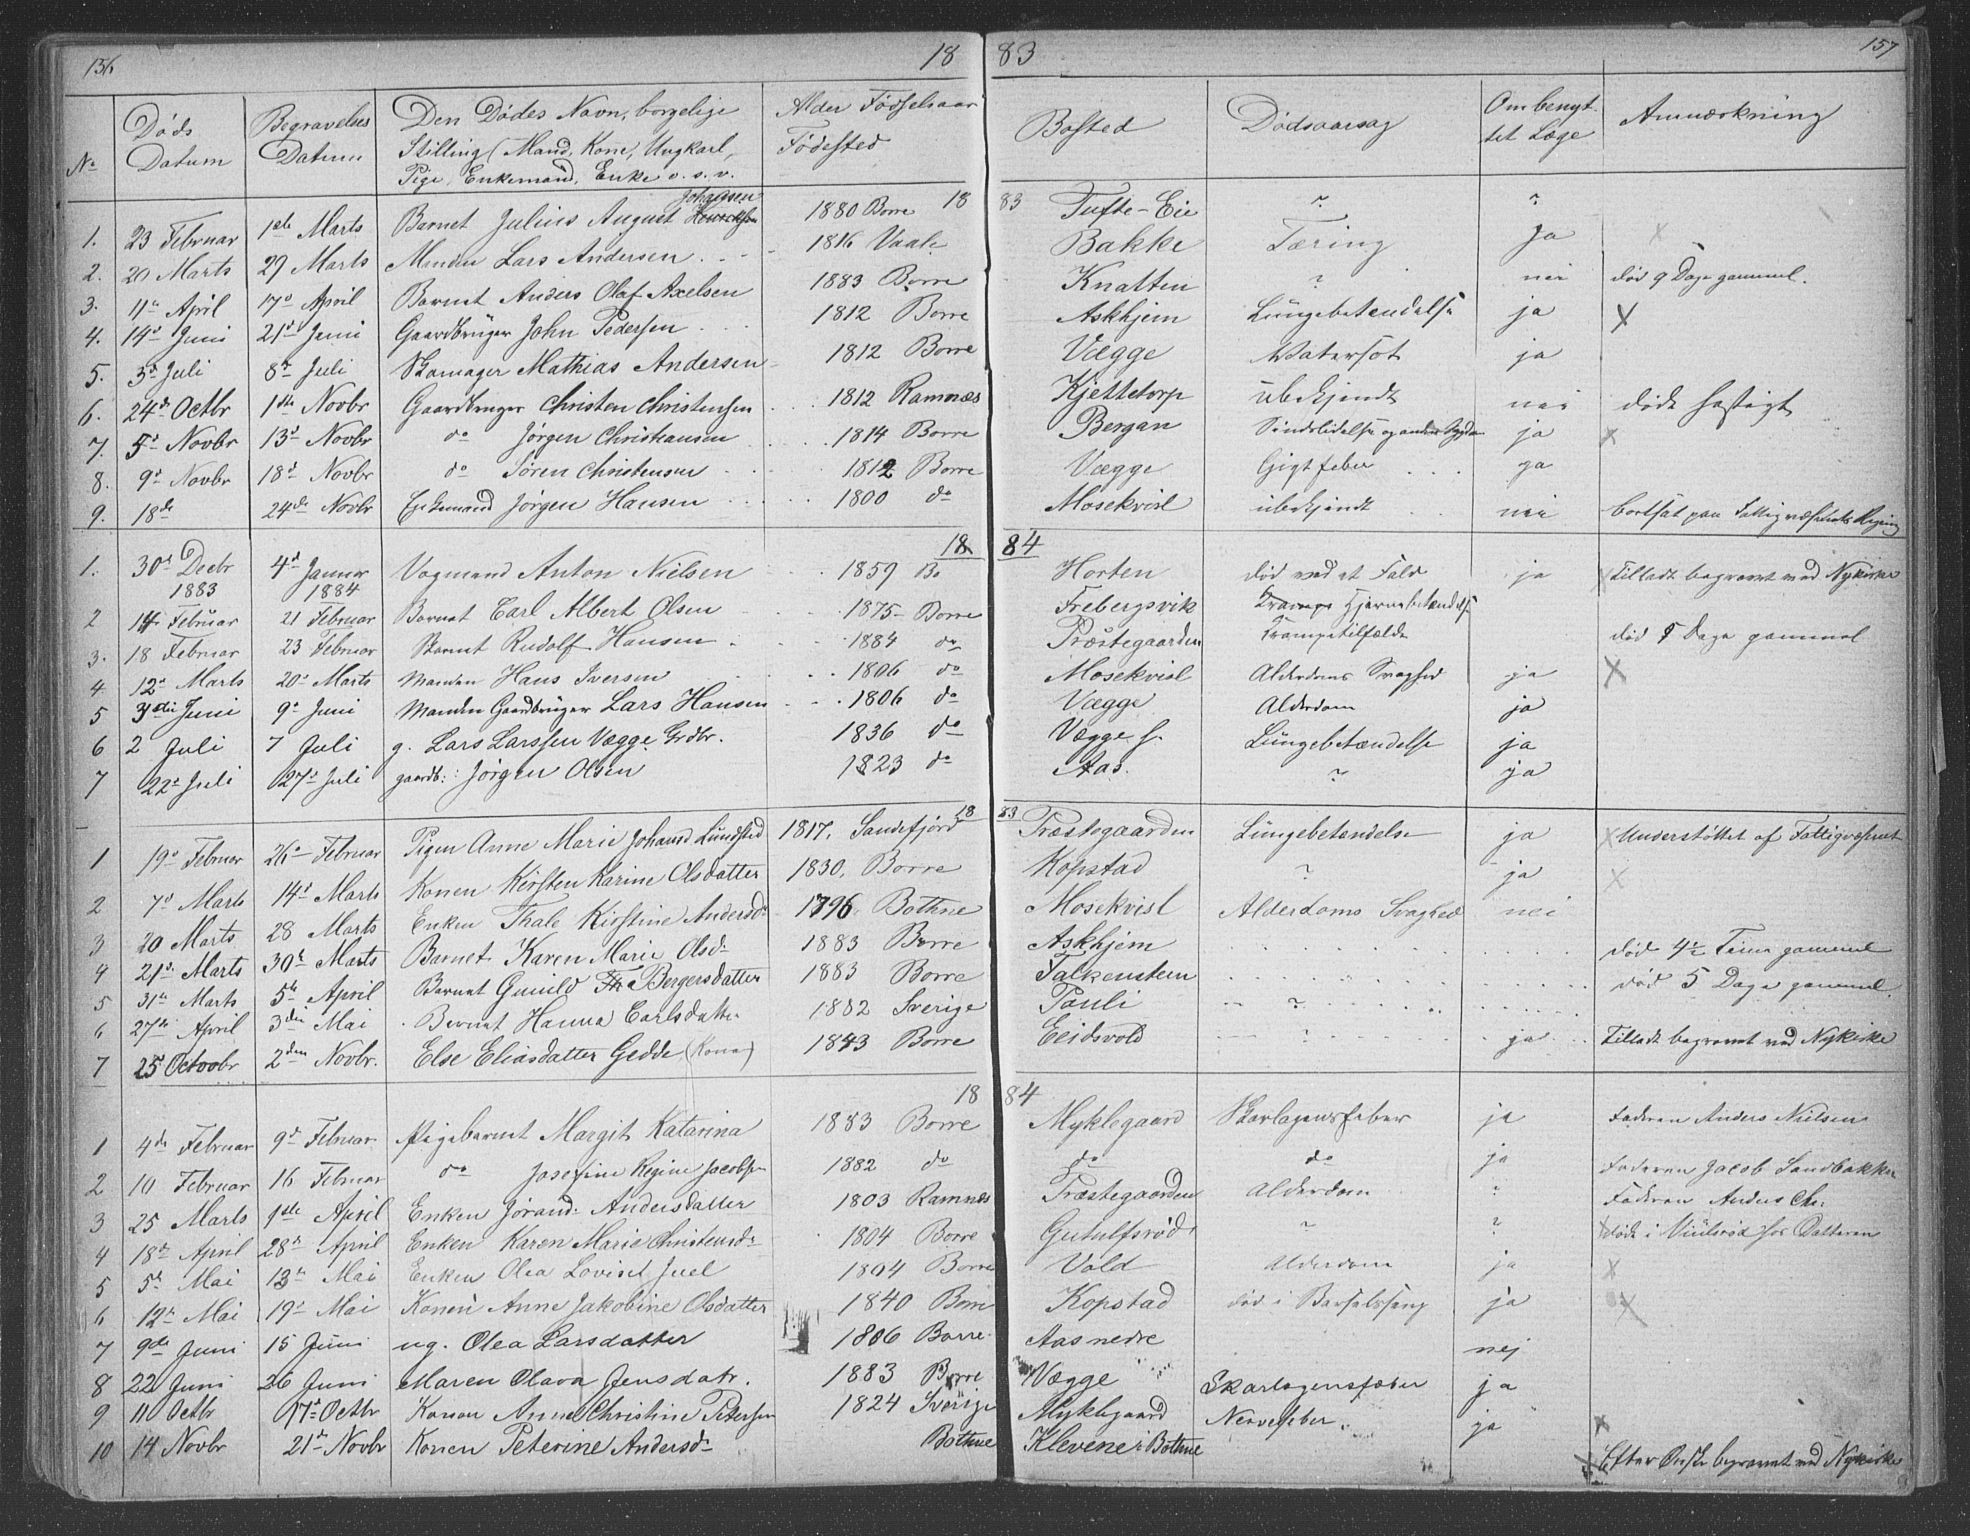 156 18 83 157
No Døds Datum Begravelses Datum Den Dødes Navn, borgelige Stilling (Mand, Kone, Ungkarl, Pige, Enkemand, Enke o. s. v. Alder Fødselsaar Fødested Bosted Dødsaarsag Om benyttet Læge Anmærkning
18 83
1. 23 Februar 1ste Marts Barnet Julius August Johansen 1880 Borre Tufte-Eie ? ?
2. 20 Marts 29 Marts Manden Lars Andersen 1816 Vaale Bakke Tæring ja
3. 11te April 17de April Barnet Anders Olaf Axelsen 1883 Borre Knatten ? nei død 9 Dage gammel.
4. 14de Juni 21de Juni Gaardbrüger John Pedersen 1812 Borre Askhjem Lüngebetændelse ja X
5. 3d Juli 8de Juli Skomager Mathias Andersen 1812 Borre Vægge Watersot ja
6. 24de Octbr 1ste Novbr Gaardbruger Christen Christensen 1812 Ramnæs Kjettetorp ubekjendt nei døde hastigt
7. 5d Novbr 13d Novbr do Jørgen Christiansen 1814 Borre Bergan Sindslidelse og anden Sygdom ja X
8. 9d Novbr 18d Novbr do Søren Christensen 1812 Borre Vægge Gigtfeber ja
9. 18de 24de Novbr Enkemand Jørgen Hansen 1800 do Mosekvisl ubekjendt nei bortsat paa Fattigvæsenets Regning
18 84
1. 30d Decbr 1883 4d Januar 1884 Vogmand Anton Nielsen 1859 Bo Horten død ved et Fald ja X Tilladt begravet ved Nykirke
2 14 Februar 21 Februar Barnet Carl Albert Olsen 1875 Borre Frebergsvik Hjernebetændelse
3. 18 Februar 23 Februar Barnet Rudolf Hansen 1884 do Præstegaarden Krampetilfælde død 5 Dage gammel
4 12d Marts 20d Marts Manden Hans Iversen 1806 do Mosekvisl Alderdoms Svaghed ja X
5 3die Juni 9d Juni Manden Gaardbruger Lars Hansen 1806 do Vægge Alderdom ja
6 2 Juli 7 Juli g. Lars Larssen Vægge Grdbr. 1836 do Vægge Lüngebetændelse ja
7 22d Juli 27d Juli gaardb: Jørgen Olsen 1823 do Aas. ? ja
18 83
1 19d Februar 26d Februar Pigen Anne Marie Johansd Lundsted 1817. Sandefjord Præstegaarden Lüngebetændelse ja X Understøttet af Fattigvæsenet
2 7d Marts 14d Marts Konen Kirsten Karine Olsdatter 1830. Borre Kopstad ? ja X
3 20 Marts 28 Marts Enken Thale Kirstine Andersdr 1796 Bothne Mosekvisl Alderdoms Svaghed nei
4 21d Marts 30te Marts Barnet Karen Marie Olsdr 1883 Borre Askhjem død 4½ Time gammel
5 31te Marts 5te April Barnet Gunild Bergersdatter 1883 Borre Falkensten død 5 Dage gammel.
6 27de April 3die Mai Barnet Hanna Carlsdatter 1882 Sverige Pauli ?
7 25 Octoobr 2den Novbr. Else Eliasdatter Gedde (Kone) 1843 Borre Eidsvold ? ja Tilladt begravet ved Nykirke
18 84
1 4de Februar 9d Februar Pigebarnet Margit Katarina 1883 Borre Myklegaard Skarlagensfeber ja Faderen Anders Nielsen
2 10 Februar 16 Februar do Josefine Regine Jacobsen 1882 do do do ja Faderen Jacob Sandbakken
3 25 Marts 1ste April Enken Jørand: Andersdatter 1803 Ramnæs Præstegaarden Alderdom ? Faderen Anders Chr.
4 18de April 28d April Enken Karen Marie Christensdr 1804 Borre Gutulfsrød ? ? X døde i hos Datteren
5 5te Mai 13te Mai Enken Olea Lovise Juel 1804 Borre Vold Alderdom ja X
6 12te Mai 19de Mai Konen Anne Jakobine Olsdatter 1840 Borre Kopstad død i Barselsseng ja X
7 9de Juni 15 Juni ug. Olea Larsdatter 1806 Borre Aas nedre nej
8 22 Juni 26 Juni Maren Olava Jensdatr. 1883 Borre Vægge Skarlagensfeber ja
9 11 Octbr 17d Octbr Konen Anne Christine Petersen 1824 Sverige Myklegaard Nervefeber ja X
10 14 Novbr 21d Novbr Konen Peterine Andersdr Bothne Klevene i Bothne X Efter Ønske begravet ved Nykirke